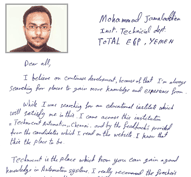 Mohammad Jamaluddin
Inst. Technical dept.
TOTAL E&P, YEMEN
Dear all,
I believe on continuous development, because of that I'm always
searching for places to gain more knowledge and experience from.
While I was searching for an educational institute which
well satisfy me in this. I came across this institution
Technocrat Automation, Chennai, and by the feedbacks provided
from the candidates which I read on the website I knew that
this the place to be.
Technocrat is the place which from you can gain a good
knowledge in Automation systems. I really recommend the